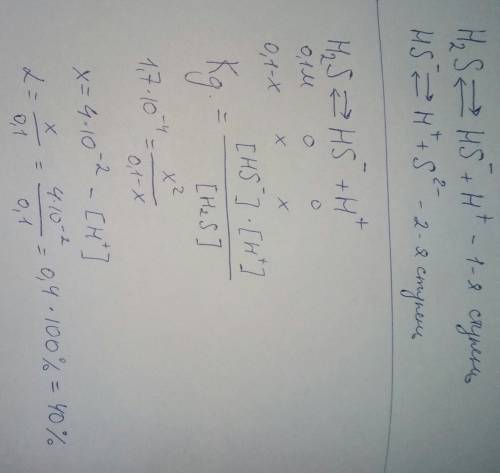 H₂S ⇄ HS⁻ + H⁺ - 1-я ступень
HS⁻ ⇄ H⁺ + S²⁻ - 2-я ступень
H₂S ⇄ HS⁻ + H⁺
0,1м 0 0
0,1-x x x
Kg. = [HS⁻]·[H⁺] / [H₂S]
1,7·10⁻⁴ = x² / 0,1-x
x = 4·10⁻² - [H⁺]
α = x / 0,1 = 4·10⁻² / 0,1 = 0,4·100% = 40%